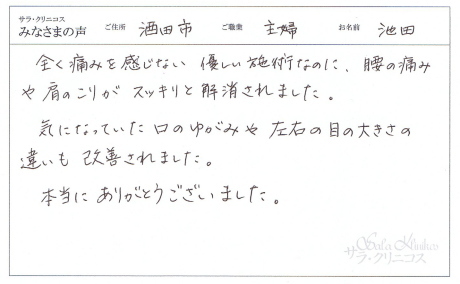 サラ・クリニコス
みなさまの声 ご住所 酒田市 ご職業 主婦 お名前 池田
全く痛みを感じない 優しい施術なのに、腰の痛み
や肩のこりが スッキリと解消されました。
気になっていた口のゆがみや 左右の目の大きさの
違いも 改善されました。
本当に ありがとうございました。
Sala Klinikos
サラ・クリニコス